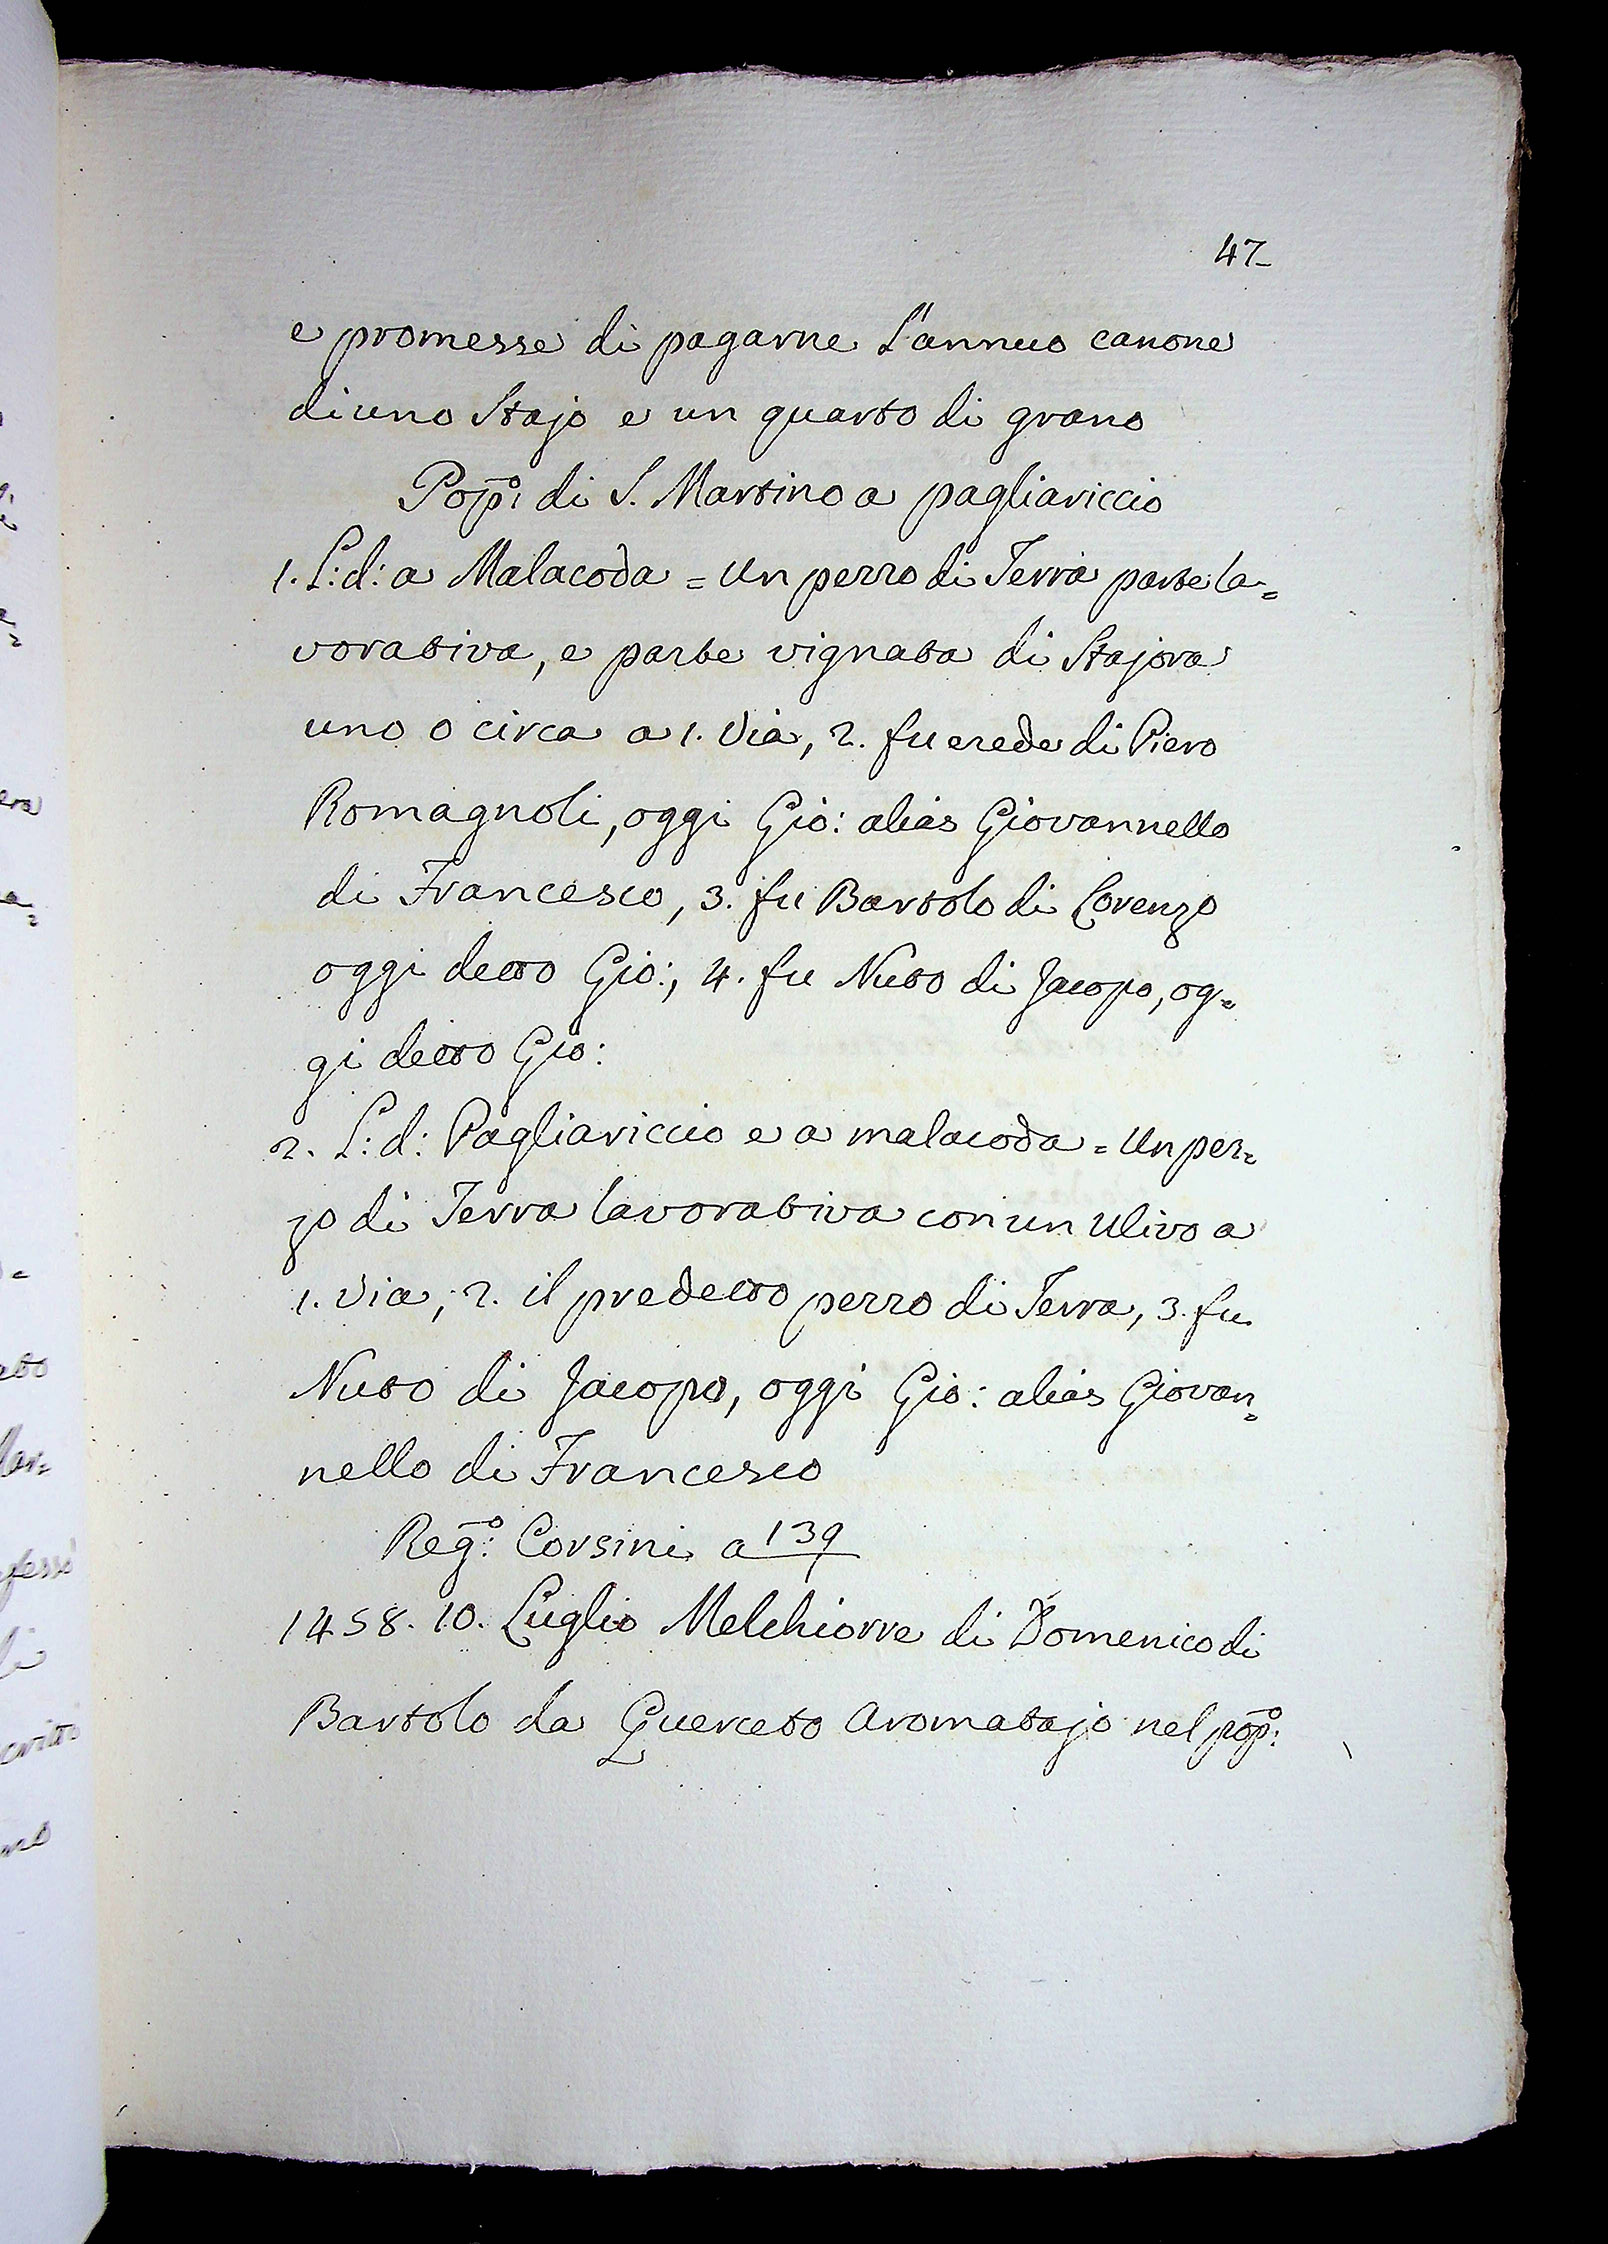 47
e promesse di pagarne L'annuo canone
di uno Stajo e un quarto di grano
Pop̄º: di S. Martino a pagliariccio
1. L: d: a Malacoda = Un pezzo di Terra parte la=
vorativa, e parte vignata di Stajora
uno o circa a 1. Via, 2. fu erede di Piero
Romagnoli, oggi Gio: alias Giovannello
di Francesco, 3. fu Bartolo di Lorenzo
oggi detto Gio:, 4. fu Nuto di Jacopo, og=
gi detto Gio:
2. L: d: Pagliariccio e a malacoda = Un pez=
zo di Terra lavorativa con un Ulivo a
1. Via, 2. il predetto pezzo di Terra, 3. fu
Nuto di Jacopo, oggi Gio: alias Giovan=
nello di Francesco
Reg̃º: Corsini a 139
1458. 10. Luglio Melchiorre di Domenico di
Bartolo da Querceto Aromatajo nel pop̄º: